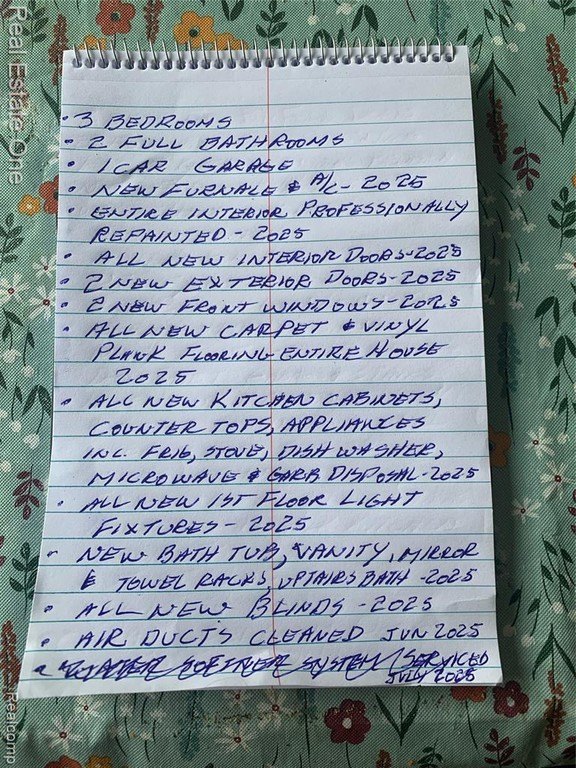 Real Estate One
• 3 BEDROOMS
• 2 FULL BATHROOMS
• 1 CAR GARAGE
• NEW FURNALE & A/C - 2025
• ENTIRE INTERIOR PROFESSIONALLY
REPAINTED - 2025
• ALL NEW INTERIOR DOORS-2025
• 2 NEW EXTERIOR DOORS-2025
• 2 NEW FRONT WINDOWS-2025
• ALL NEW CARPET & VINYL
PLANK FLOORING ENTIRE HOUSE
2025
• ALL NEW KITCHEN CABINETS,
COUNTER TOPS, APPLIANCES
INC. FRIG, STOVE, DISH WASHER,
MICROWAVE & GARB DISPOSAL-2025
• ALL NEW 1ST FLOOR LIGHT
FIXTURES - 2025
• NEW BATH TUB, VANITY, MIRROR
& TOWEL RACKS, UPTAIRS BATH -2025
• ALL NEW BLINDS -2025
• AIR DUCTS CLEANED JUN 2025
• WATER SOFTNER SYSTEM SERVICED
JULY 2025
Realcomp